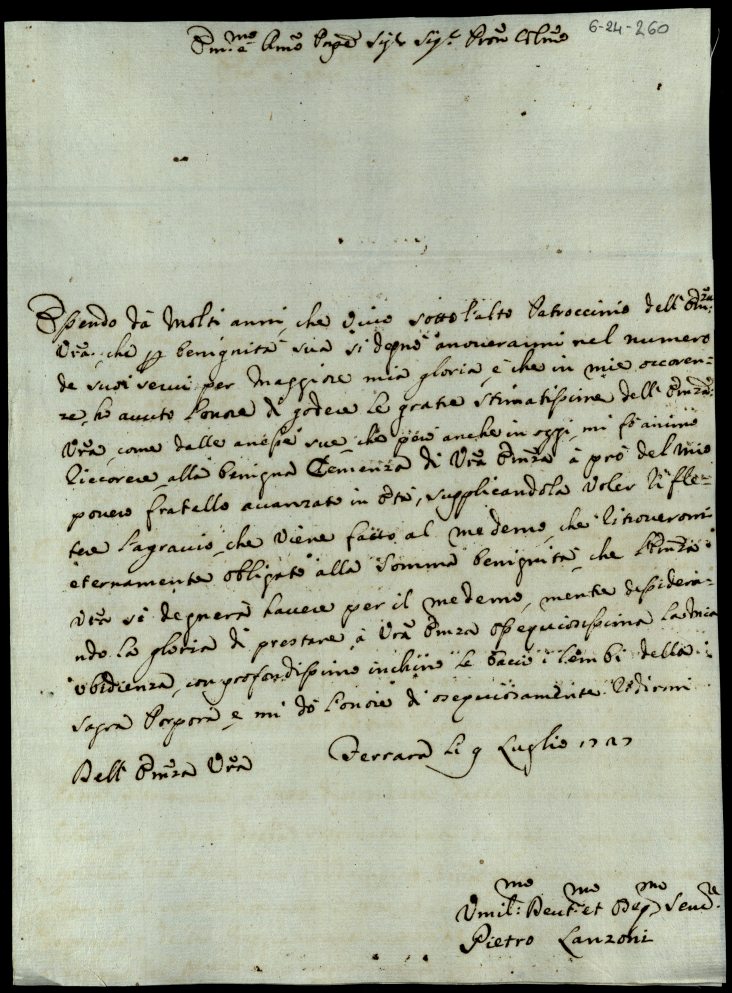 6-24-260
Em.mo e Rmo Prpe Sig.r Sig.r Pron Colmo
Essendo da Molti anni, che vivo sotto l'alto Patroccinio dell' Emza
Vra, che per benignità sua si degnò anoverarmi nel numero
de suoi servi per Maggiore mia gloria, e che in mie occoren=
ze, ho avuto l'onore di godere le gratie stimatissime dell' Emza
Vra, come dalle anesse sue, che però anche in oggi, mi fò animo
ricorere alla benigna Clemenza di Vra Emza à prò del mio
povero fratello avanzato in età, supplicandola voler rifle=
tere l'agravio, che viene fatto al medemo, che ritroveromi
eternamente obligato alla somma benignità, che l'Emza
Vra si degnerà havere per il medemo, mentre dessidera=
ndo la gloria di prestare à Vra Emza ossequiosissima la mia
ubidienza, con profondissimo inchino le bacio i lembi della
sagra Porpora, e mi dò l'onore di osequiosamente ridirmi
Dell' Emza Vra Ferrara li 9 Luglio 1727
Umil.mo Devt.mo et Obg.mo Serv.re
Pietro Lanzoni